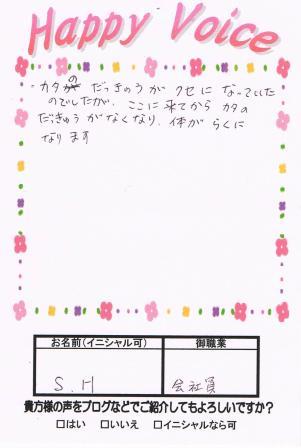 Happy Voice
カタの だっきゅうが クセに なっていた
のでしたが、ここに来てから カタの
だっきゅうがなくなり、体が らくに
なります
お名前(イニシャル可) 御職業
S.H 会社員
貴方様の声をブログなどでご紹介してもよろしいですか?
□はい □いいえ □イニシャルなら可